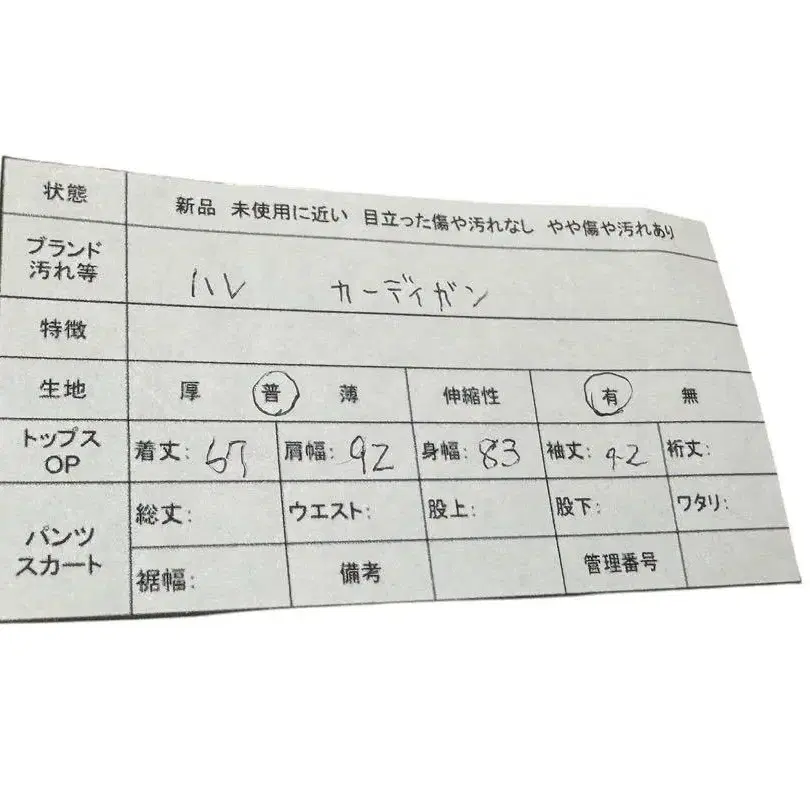 状態 新品 未使用に近い 目立った傷や汚れなし やや傷や汚れあり
ブランド
汚れ等 ハレ カーディガン
特徴
生地 厚 普 薄 伸縮性 有 無
トップス
OP 着丈: 67 肩幅: 92 身幅: 83 袖丈: 92 裄丈:
パンツ
スカート 総丈: ウエスト: 股上: 股下: ワタリ:
裾幅: 備考 管理番号